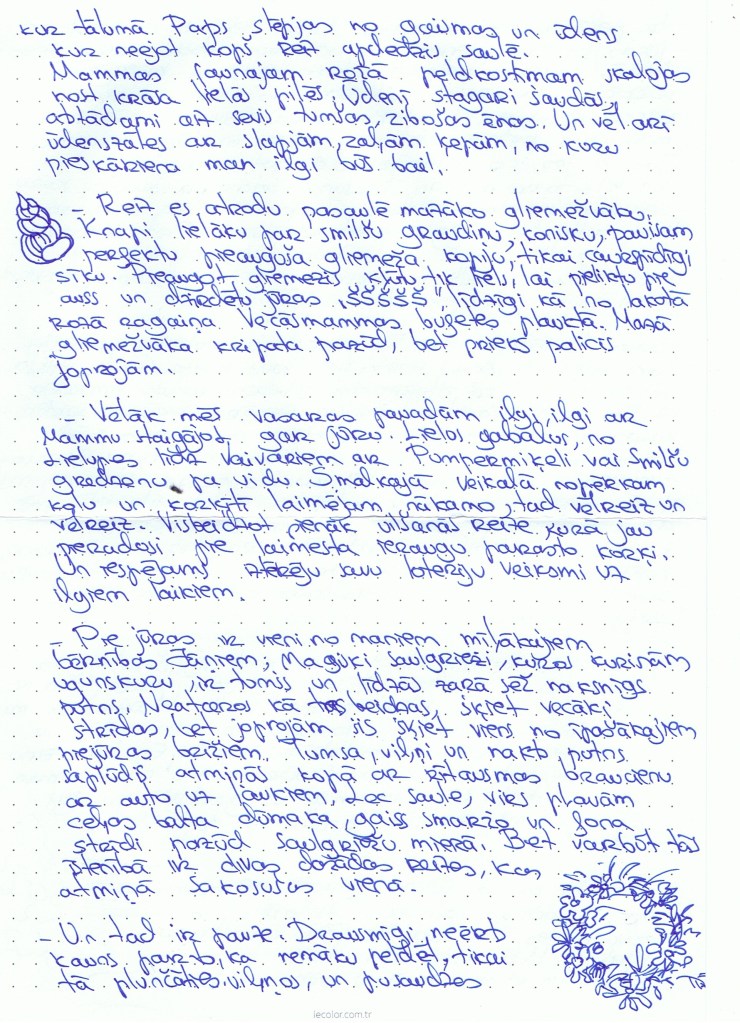 kur tālumā. Paps stepjas no gaismas un ūdens
kur neejot kopš reiz apdedzis saulē.
Mammas jaunajam rozā peldkostīmam skalojas
nost krāsa lielās pilēs. Ūdenī stagari šaudās,
atstādami aiz sevis tumšas, zibošas ēnas. Un vēl arī
ūdenszāles ar slapjām, zaļām ķepām, no kuru
pieskāriena man ilgi būs bail.
- Reiz es atrodu pasaulē mazāko gliemežvāku.
Knapi lielāku par smilšu graudiņu, konisku, pavisam
perfektu pieauguša gliemeža kopiju, tikai caurspīdīgi
sīku. Pieaugot gliemezis kļūtu tik liels, lai pieliktu pie
auss un dzirdētu jūras "ššššš", līdzīgi kā no lakotā
rozā ragaiņa Vecāsmammas bufetes plauktā. Mazā
gliemežvāka kripata pazūd, bet prieks palicis
joprojām.
- Vēlāk mēs vasaras pavadām ilgi, ilgi ar
Mammu staigājot gar jūru. Lielos gabalus, no
Lielupes līdz Vaivariem ar Pumpermiķeli vai Smilšu
gredzenu pa vidu. Smalkajā veikalā nopērkam
kolu un korķītī laimējam nākamo, tad vēlreiz un
vēlreiz. Visbeidzot pienāk vilšanās reize, kurā jau
pieradusi pie laimesta ieraugu parasto korķi.
Un iespējams iztērēju savu loteriju veiksmi uz
ilgiem laikiem.
- Pie jūras ir vieni no maniem mīļākajiem
bērnības Jāņiem; Maģiski saulgrieži, kuros kurinām
ugunskuru, ir tumšs un līdzās zarā sēž naksnīgs
putns. Neatceros kā tas beidzas, šķiet vecāki
strīdas, bet joprojām šis šķiet viens no īpašākajiem
piejūras brīžiem. Tumsa, viļņi un nakts putns
saplūdis atmiņās kopā ar rītausmas braucienu
ar auto uz laukiem. Lec saule, virs pļavām
ceļas balta dūmaka, gaiss smaržo un fona
strīdi pazūd saulgriežu mierā. Bet varbūt tās
īstenībā ir divas dažādas reizes, kas
atmiņā sakusušas vienā.
- Un tad ir pauze. Drausmīgi, neērts
kauns par to, ka nemāku peldēt, tikai
tā plunčāties viļņos, un pusaudzes
lecolor.com.tr